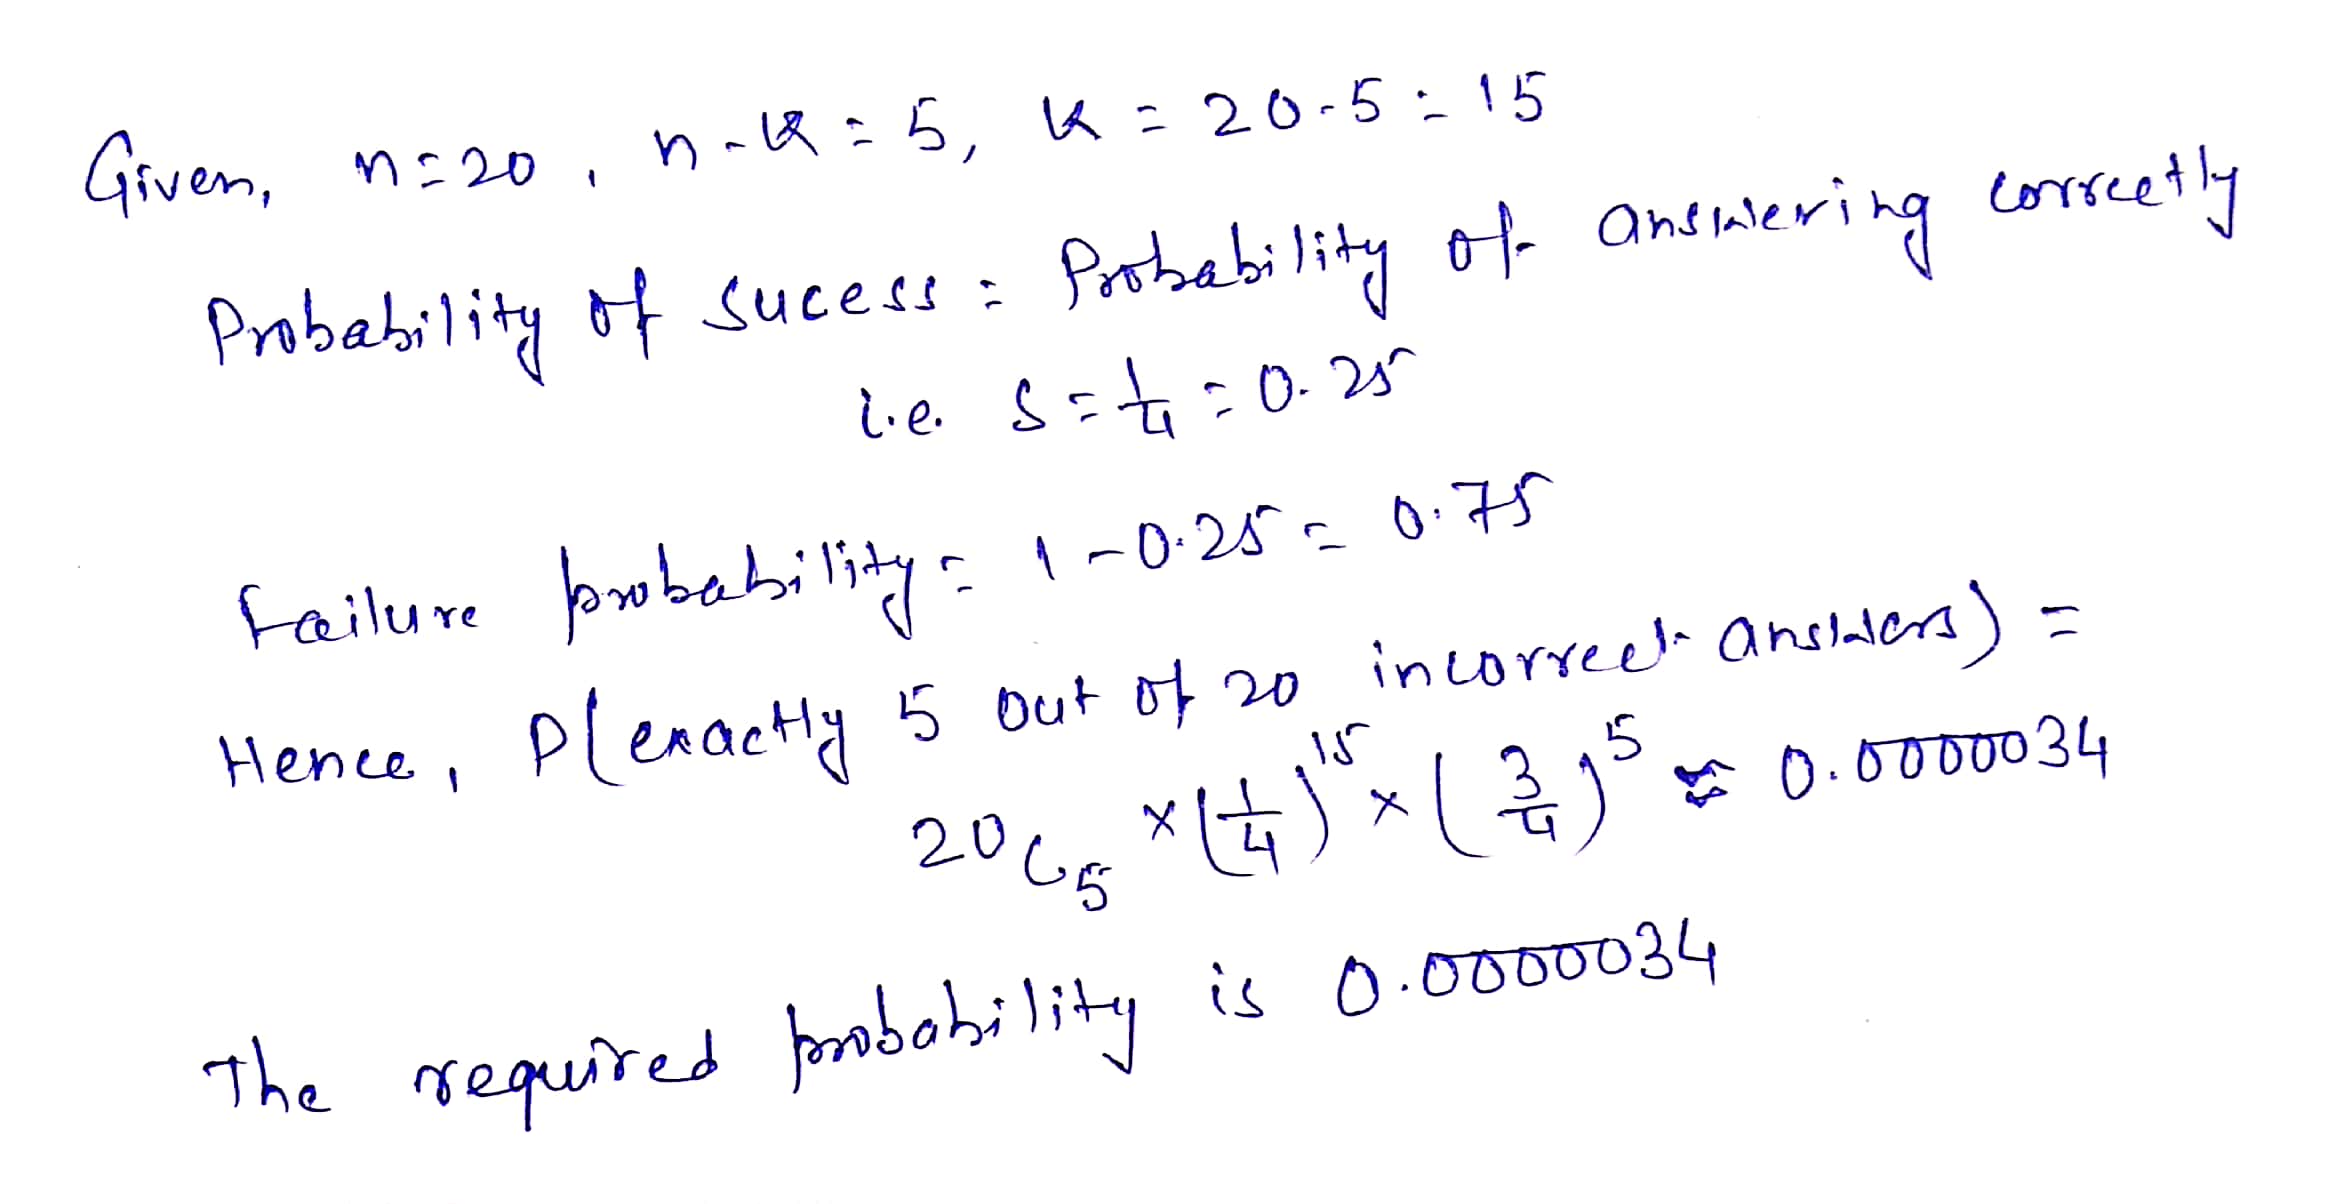 Given, n=20, n-k=5, k=20-5=15
Probability of sucess = Probability of answering correctly
i.e. s=1/4=0.25
Failure probability = 1-0.25 = 0.75
Hence, P(exactly 5 out of 20 incorrect answers) =
20C5 ×(1/4)^15 × (3/4)^5 ≈ 0.0000034
The required probability is 0.0000034